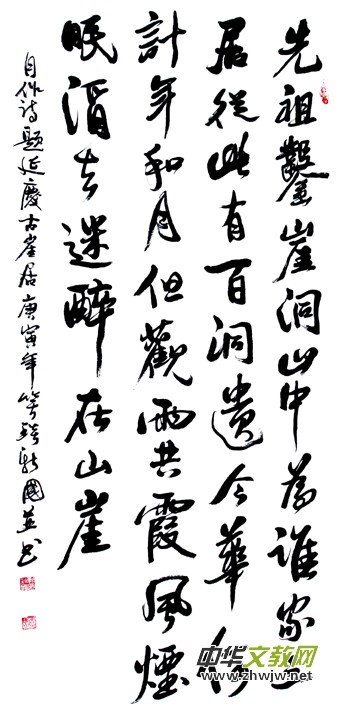 先祖鑿崖洞山中為誰家
居從此有百洞遺今華何
計年和月但觀雨共霞風煙
眠消去迷醉在山崖
自作詩題延慶古崖居庚寅年國並書
中华文教网
www.zhwjw.net